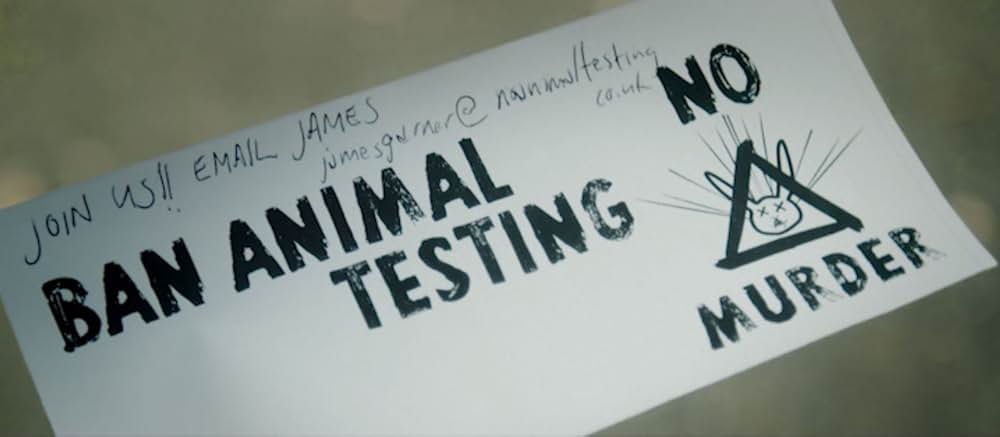 JOIN US!! EMAIL JAMES
jamesgarner@noanimaltesting
co.uk
BAN ANIMAL
TESTING
NO
MURDER